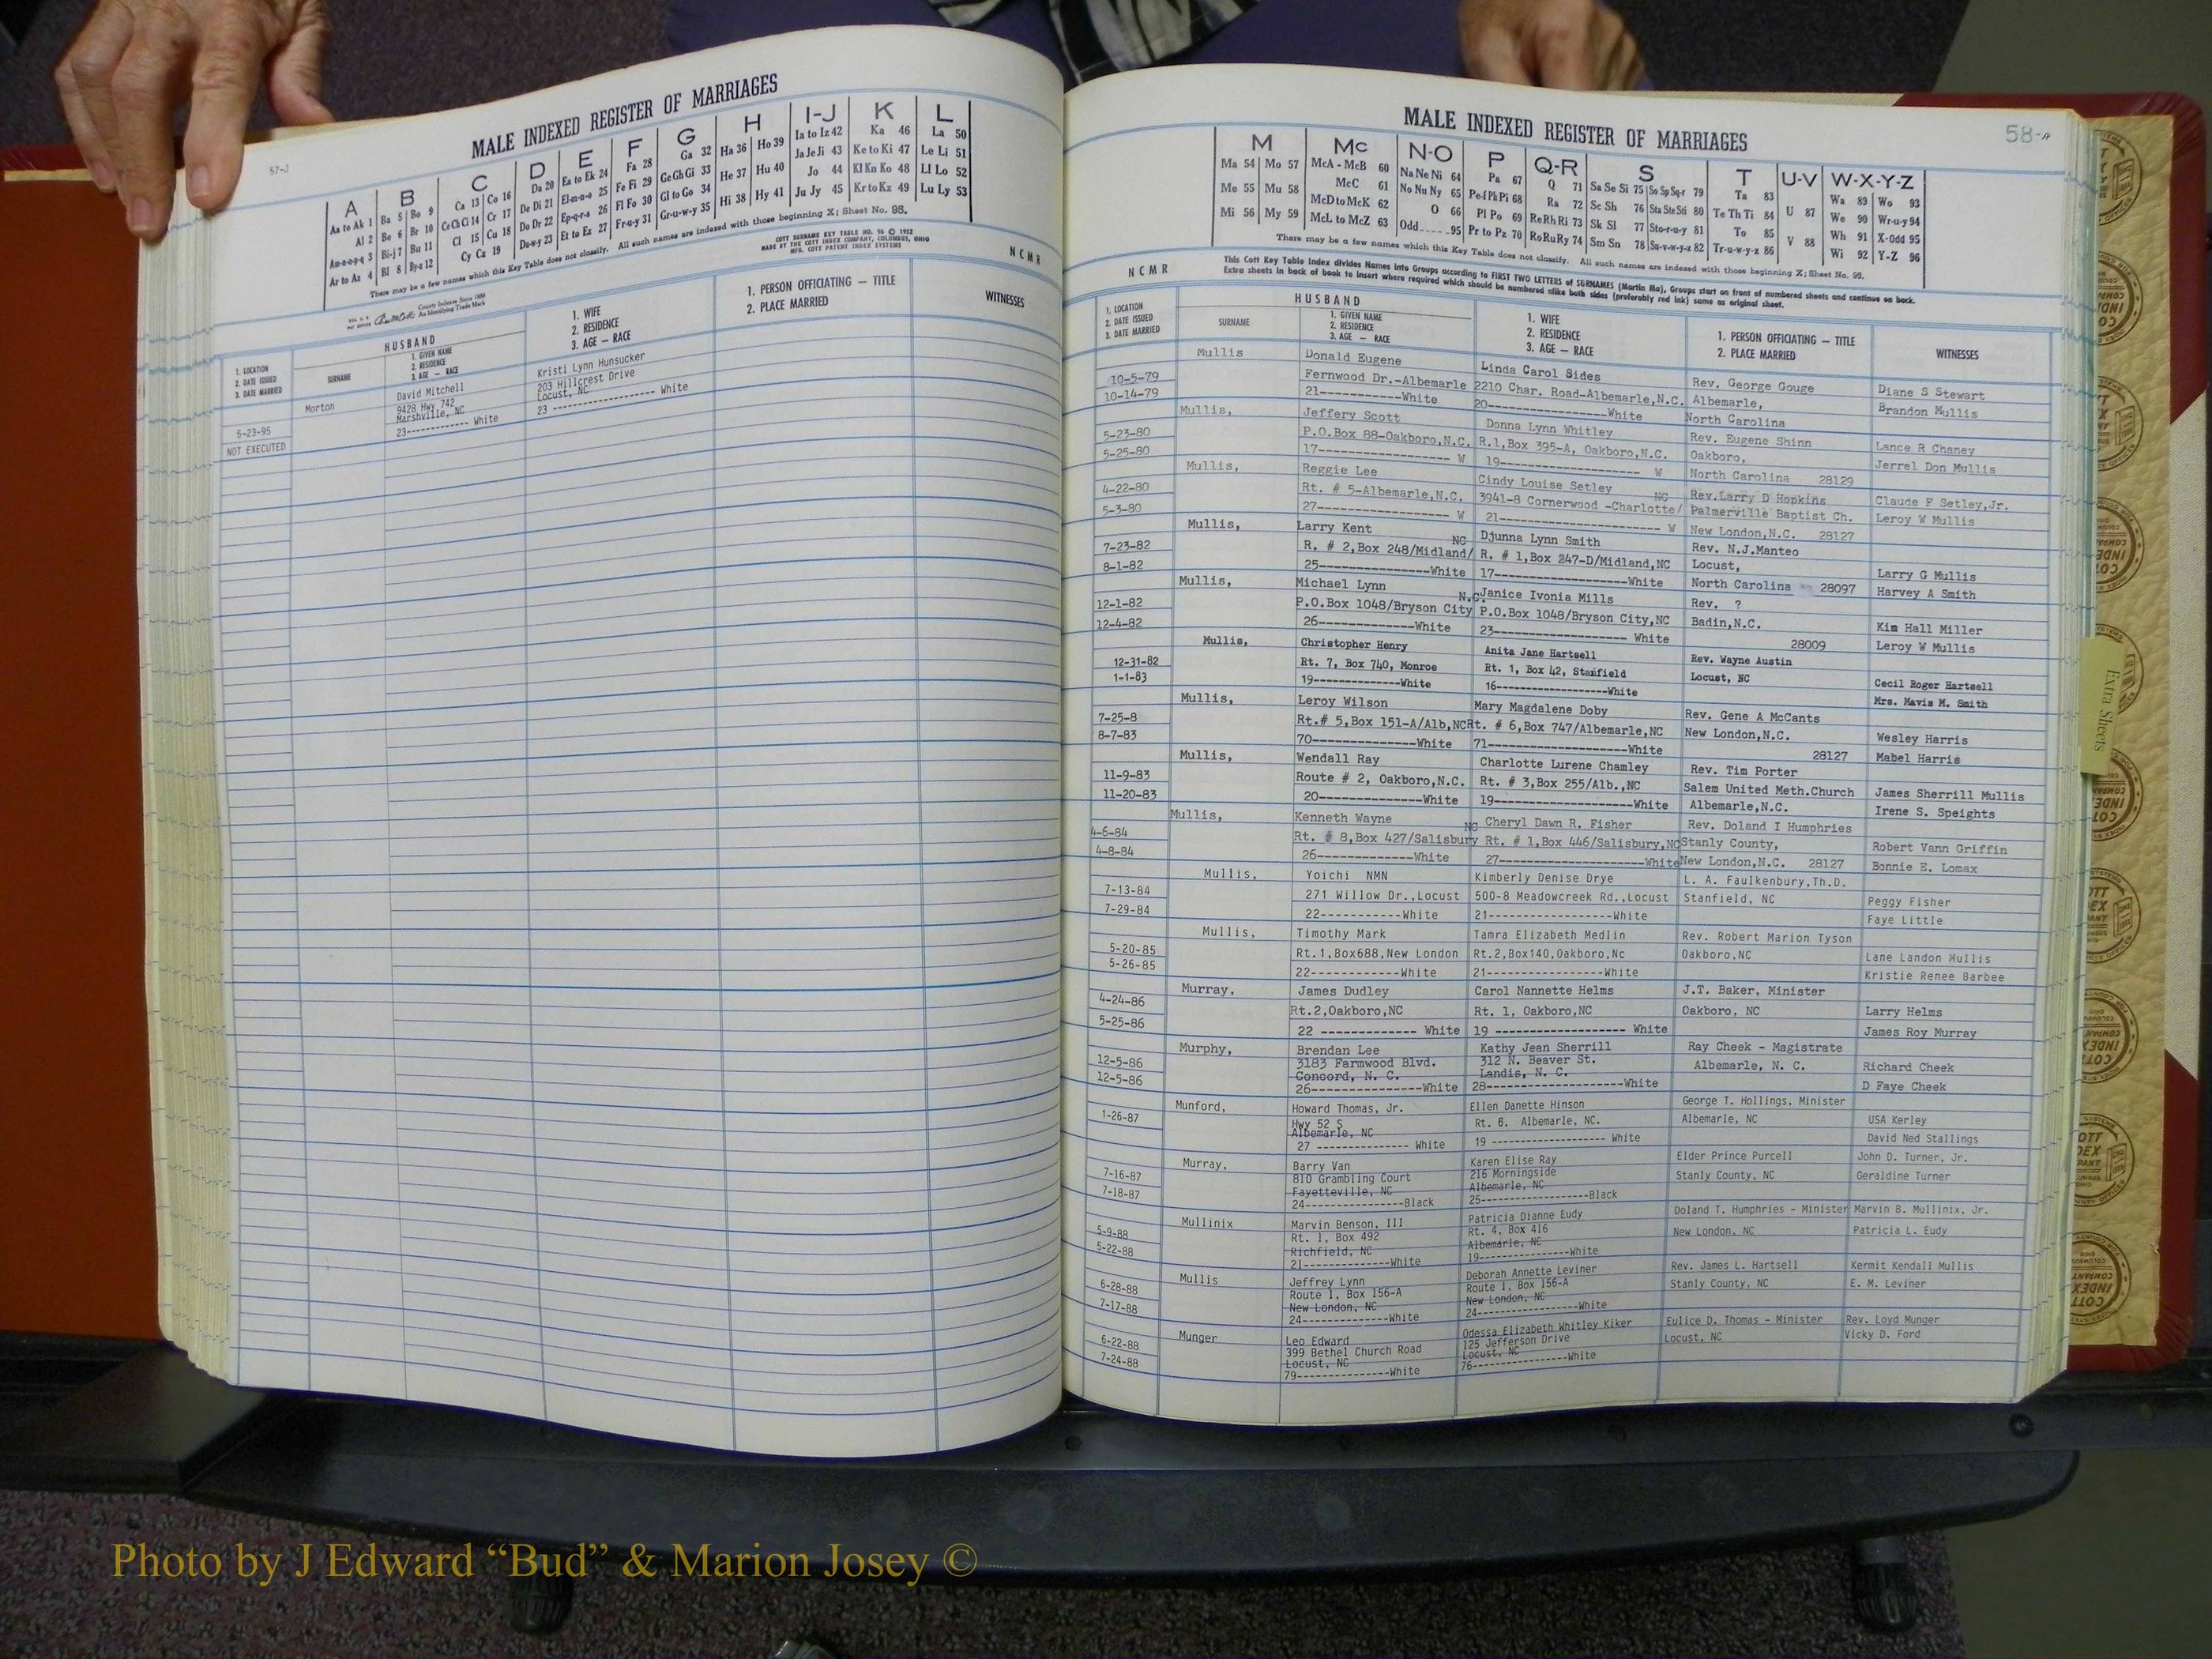 57-J
MALE INDEXED REGISTER OF MARRIAGES
A B C D E F G H I-J K L
Aa to Ak 1 Ba 5 Bo 9 Ca 13 Co 16 Da 20 Ea to Ek 24 Fa 28 Ga 32 Ha 36 Ho 39 Ia to Iz 42 Ka 46 La 50
Al 2 Be 6 Br 10 Ce Ch Ci 14 Cr 17 De Di 21 El-m-n-o 25 Fe Fi 29 Ge Gh Gi 33 He 37 Hu 40 Ja Je Ji 43 Ke to Ki 47 Le Li 51
Am-n-o-p-q 3 Bi-j 7 Bu 11 Cl 15 Cu 18 Do Dr 22 Ep-q-r-s 26 Fl Fo 30 Gl to Go 34 Hi 38 Hy 41 Jo 44 Kl Kn Ko 48 Ll Lo 52
Ar to Az 4 Bl 8 By-z 12 Cy Cz 19 Du-w-y 23 Et to Ez 27 Fr-u-y 31 Gr-u-w-y 35 Ju Jy 45 Kr to Kz 49 Lu Ly 53
There may be a few names which this Key Table does not classify. All such names are indexed with those beginning X; Sheet No. 95.
COTT SURNAME KEY TABLE NO. 96 © 1952
MADE BY THE COTT INDEX COMPANY, COLUMBUS, OHIO
MFG. COTT PATENT INDEX SYSTEMS
County Indexes Since 1888
An Identifying Trade Mark
NCMR
1. LOCATION
2. DATE ISSUED
3. DATE MARRIED
HUSBAND
SURNAME
1. GIVEN NAME
2. RESIDENCE
3. AGE — RACE
1. WIFE
2. RESIDENCE
3. AGE — RACE
1. PERSON OFFICIATING — TITLE
2. PLACE MARRIED
WITNESSES
Morton David Mitchell Kristi Lynn Hunsucker
9428 Hwy 742 203 Hillcrest Drive
Marshville, NC Locust, NC
5-23-95 23------------- White 23 ------------------- White
NOT EXECUTED
58-A
MALE INDEXED REGISTER OF MARRIAGES
M Mc N-O P Q-R S T U-V W-X-Y-Z
Ma 54 Mo 57 McA - McB 60 Na Ne Ni 64 Pa 67 Q 71 Sa Se Si 75 So Sp Sq-r 79 Ta 83 U 87 Wa 89 Wo 93
Me 55 Mu 58 McC 61 No Nu Ny 65 Pe-f Ph Pi 68 Ra 72 Sc Sh 76 Sta Ste Sti 80 Te Th Ti 84 V 88 We 90 Wr-u-y 94
Mi 56 My 59 McD to McK 62 O 66 Pl Po 69 Re Rh Ri 73 Sk Sl 77 Sto-r-u-y 81 To 85 Wh 91 X-Odd 95
McL to McZ 63 Odd 95 Pr to Pz 70 Ro Ru Ry 74 Sm Sn 78 Su-v-w-y-z 82 Tr-u-w-y-z 86 Wi 92 Y-Z 96
There may be a few names which this Key Table does not classify. All such names are indexed with those beginning X; Sheet No. 95.
This Cott Key Table Index divides Names into Groups according to FIRST TWO LETTERS of SURNAMES (Martin Ma), Groups start on front of numbered sheets and continue on back.
Extra sheets in back of book to insert where required which should be numbered alike both sides (preferably red ink) same as original sheet.
NCMR
1. LOCATION
2. DATE ISSUED
3. DATE MARRIED
HUSBAND
SURNAME
1. GIVEN NAME
2. RESIDENCE
3. AGE — RACE
1. WIFE
2. RESIDENCE
3. AGE — RACE
1. PERSON OFFICIATING — TITLE
2. PLACE MARRIED
WITNESSES
Mullis Donald Eugene Linda Carol Sides Rev. George Gouge Diane S Stewart
10-5-79 Fernwood Dr.-Albemarle 2210 Char. Road-Albemarle,N.C. Albemarle, Brandon Mullis
10-14-79 21-----------White 20---------------White North Carolina
Mullis, Jeffery Scott Donna Lynn Whitley Rev. Eugene Shinn Lance R Chaney
5-23-80 P.O.Box 88-Oakboro,N.C. R.1,Box 395-A, Oakboro,N.C. Oakboro, Jerrel Don Mullis
5-25-80 17------------------ W 19------------------ W North Carolina 28129
Mullis, Reggie Lee Cindy Louise Setley Rev.Larry D Hopkins Claude F Setley,Jr.
4-22-80 Rt. # 5-Albemarle,N.C. 3941-8 Cornerwood -Charlotte/ NC Palmerville Baptist Ch. Leroy W Mullis
5-3-80 27------------------ W 21---------------------- W New London,N.C. 28127
Mullis, Larry Kent Djunna Lynn Smith Rev. N.J.Manteo Larry G Mullis
7-23-82 R. # 2,Box 248/Midland/ NC R. # 1,Box 247-D/Midland,NC Locust, Harvey A Smith
8-1-82 25--------------White 17------------------White North Carolina 28097
Mullis, Michael Lynn Janice Ivonia Mills Rev. ? Kim Hall Miller
12-1-82 P.O.Box 1048/Bryson City N.C. P.O.Box 1048/Bryson City,NC Badin,N.C. Leroy W Mullis
12-4-82 26------------White 23----------------- White 28009
Mullis, Christopher Henry Anita Jane Hartsell Rev. Wayne Austin Cecil Roger Hartsell
12-31-82 Rt. 7, Box 740, Monroe Rt. 1, Box 42, Stanfield Locust, NC Mrs. Mavis M. Smith
1-1-83 19--------------White 16------------------White
Mullis, Leroy Wilson Mary Magdalene Doby Rev. Gene A McCants Wesley Harris
7-25-8 Rt.# 5,Box 151-A/Alb,NC Rt. # 6,Box 747/Albemarle,NC New London,N.C. Mabel Harris
8-7-83 70--------------White 71----------------------White 28127
Mullis, Wendall Ray Charlotte Lurene Chamley Rev. Tim Porter James Sherrill Mullis
11-9-83 Route # 2, Oakboro,N.C. Rt. # 3,Box 255/Alb.,NC Salem United Meth.Church Irene S. Speights
11-20-83 20--------------White 19------------------White Albemarle,N.C.
Mullis, Kenneth Wayne Cheryl Dawn R. Fisher Rev. Doland I Humphries Robert Vann Griffin
4-6-84 Rt. # 8,Box 427/Salisbury NC Rt. # 1,Box 446/Salisbury,NC Stanly County, Bonnie E. Lomax
4-8-84 26------------White 27--------------------White New London,N.C. 28127
Mullis, Yoichi NMN Kimberly Denise Drye L. A. Faulkenbury,Th.D. Peggy Fisher
7-13-84 271 Willow Dr.,Locust 500-8 Meadowcreek Rd.,Locust Stanfield, NC Faye Little
7-29-84 22-----------White 21-----------------White
Mullis, Timothy Mark Tamra Elizabeth Medlin Rev. Robert Marion Tyson Lane Landon Mullis
5-20-85 Rt.1,Box688,New London Rt.2,Box140,Oakboro,Nc Oakboro,NC Kristie Renee Barbee
5-26-85 22------------White 21---------------White
Murray, James Dudley Carol Nannette Helms J.T. Baker, Minister Larry Helms
4-24-86 Rt.2,Oakboro,NC Rt. 1, Oakboro,NC Oakboro, NC James Roy Murray
5-25-86 22 ------------- White 19 ------------------ White
Murphy, Brendan Lee Kathy Jean Sherrill Ray Cheek - Magistrate Richard Cheek
12-5-86 3183 Farmwood Blvd. 312 N. Beaver St. Albemarle, N. C. D Faye Cheek
12-5-86 Concord, N. C. Landis, N. C.
26---------------White 28---------------------White
Munford, Howard Thomas, Jr. Ellen Danette Hinson George T. Hollings, Minister USA Kerley
1-26-87 Hwy 52 S Rt. 6. Albemarle, NC. Albemarle, NC David Ned Stallings
Albemarle, NC
27 ------------- White 19 ---------------- White
Murray, Barry Van Karen Elise Ray Elder Prince Purcell John D. Turner, Jr.
7-16-87 810 Grambling Court 216 Morningside Stanly County, NC Geraldine Turner
7-18-87 Fayetteville, NC Albemarle, NC
24--------------Black 25---------------Black
Mullinix Marvin Benson, III Patricia Dianne Eudy Doland T. Humphries - Minister Marvin B. Mullinix, Jr.
5-9-88 Rt. 1, Box 492 Rt. 4, Box 416 New London, NC Patricia L. Eudy
5-22-88 Richfield, NC Albemarle, NC
21------------White 19-------------White
Mullis Jeffrey Lynn Deborah Annette Leviner Rev. James L. Hartsell Kermit Kendall Mullis
6-28-88 Route 1, Box 156-A Route 1, Box 156-A Stanly County, NC E. M. Leviner
7-17-88 New London, NC New London, NC
24------------White 24---------------White
Munger Leo Edward Odessa Elizabeth Whitley Kiker Eulice D. Thomas - Minister Rev. Loyd Munger
6-22-88 399 Bethel Church Road 125 Jefferson Drive Locust, NC Vicky D. Ford
7-24-88 Locust, NC Locust, NC
79-------------White 76--------------White
Extra Sheets
Photo by J Edward “Bud” & Marion Josey ©